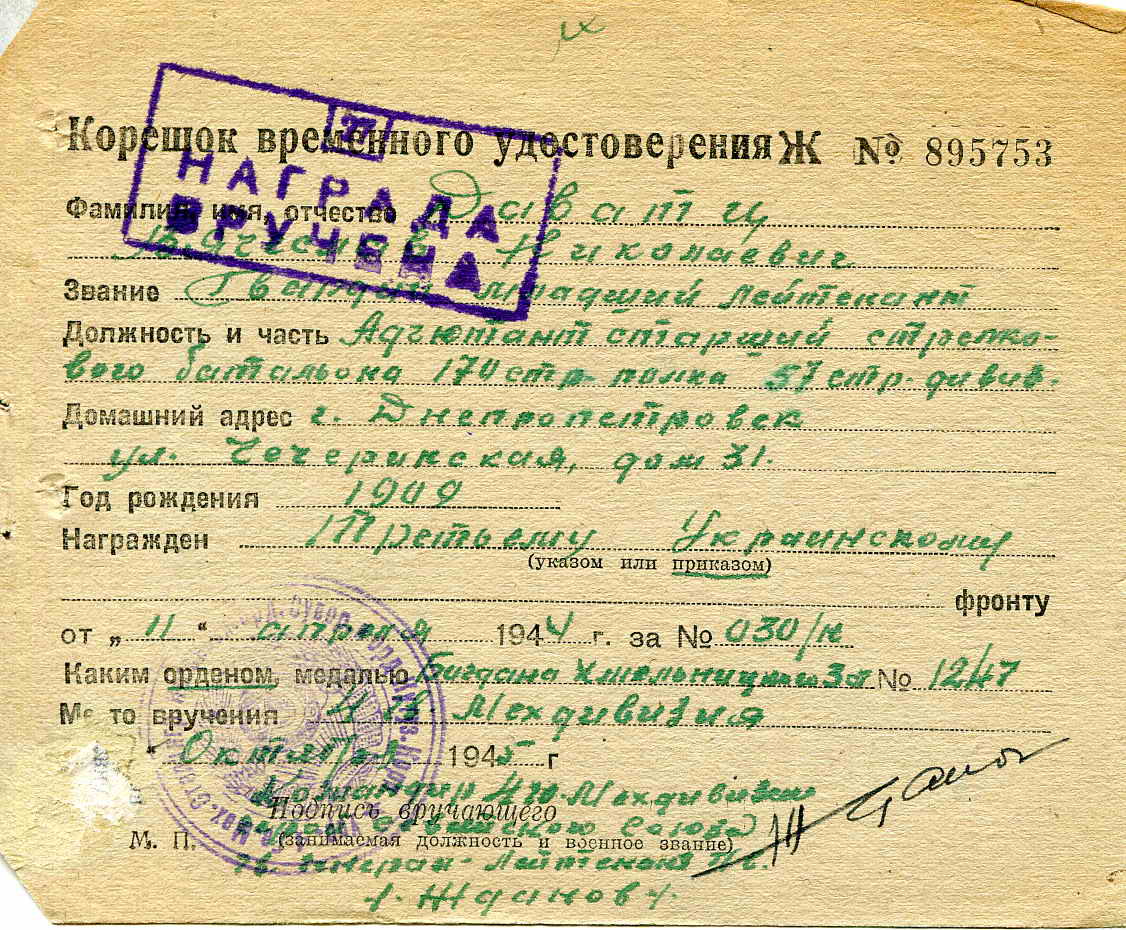 Корешок временного удостоверения Ж № 895753
НАГРАДА
ВРУЧЕНА
Фамилия, имя, отчество Даватц
Вячеслав Николаевич
Звание Гвардии младший лейтенант
Должность и часть Адъютант старший стрелко-
вого батальона 170 стр полка 57 стр. дивиз.
Домашний адрес г. Днепропетровск
ул. Чечеринская, дом 31.
Год рождения 1909
Награжден Третьему Украинскому
(указом или приказом)
фронту
от „ 11 “ апреля 1944 г. за № 030/н
Каким орденом, медалью Богдана Хмельницкого 3 ст № 1247
Место вручения Мехдивизия
" Октября 1945 г
Командир Мехдивизии
Подпись вручающего
Советского Союза
М. П. (занимаемая должность и военное звание)
Гв. генерал-лейтенант
Жданов